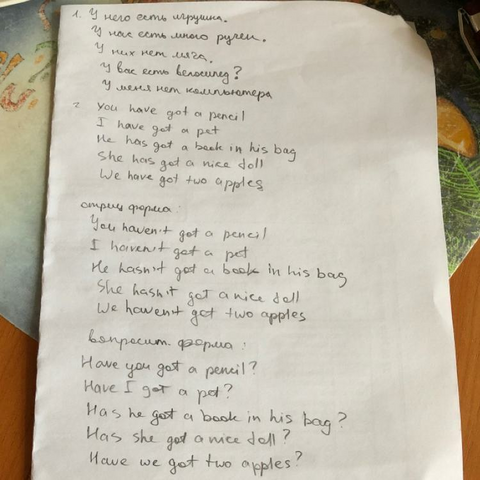 1. У него есть игрушка.
У нас есть много ручек.
У них нет мяча.
У вас есть велосипед?
У меня нет компьютера
2. You have got a pencil
I have got a pet
He has got a book in his bag
She has got a nice doll
We have got two apples
отриц форма:
You haven't got a pencil
I haven't got a pet
He hasn't got a book in his bag
She hasn't got a nice doll
We haven't got two apples
вопросит. форма:
Have you got a pencil?
Have I got a pet?
Has he got a book in his bag?
Has she got a nice doll?
Have we got two apples?